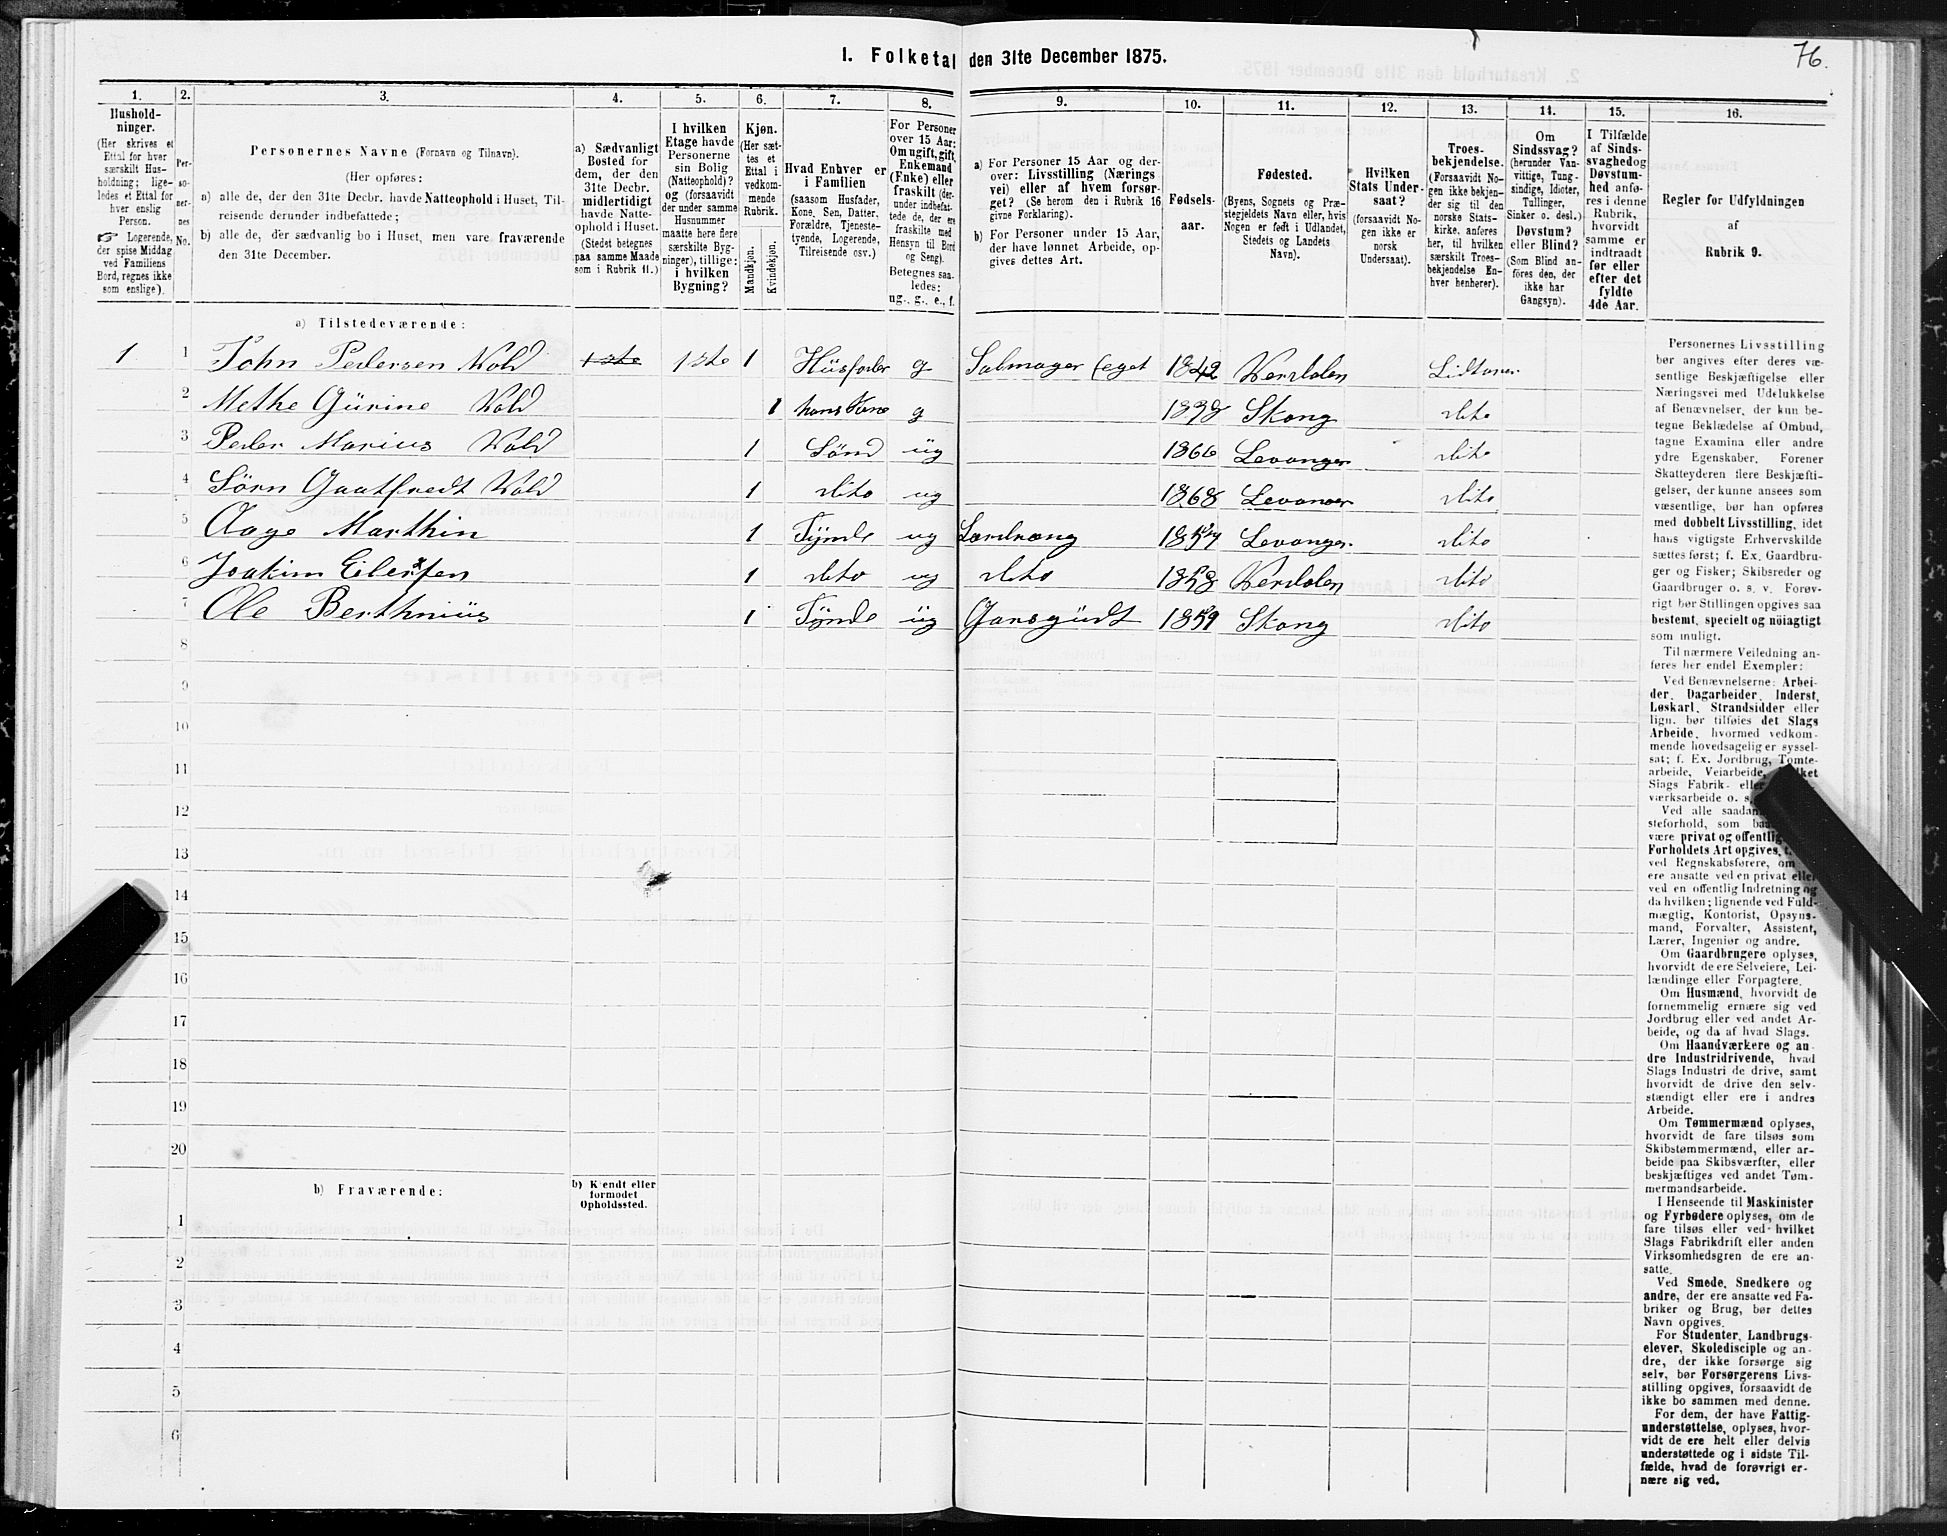 76.
1. Folketal den 31te December 1875.
1. 2. 3. 4. 5. 6. 7. 8. 9. 10. 11. 12. 13. 14. 15. 16.
Hushold-
ninger.
(Her skrives et
Ettal for hver
særskilt Hus-
holdning; lige-
ledes et Ettal for
hver enslig
Person.
☞ Logerende,
der spise Middag
ved Familiens
Bord, regnes ikke
som enslige).
Per-
so-
ner-
nes
No.
Personernes Navne (Fornavn og Tilnavn).
(Her opføres:
a) alle de, der den 31te Decbr. havde Natteophold i Huset, Til-
reisende derunder indbefattede;
b) alle de, der sædvanlig bo i Huset, men vare fraværende
den 31te December.
a) Sædvanligt
Bosted for
dem, der den
31te Decbr.
midlertidigt
havde Natte-
ophold i Huset.
(Stedet betegnes
paa samme Maade
som i Rubrik 11.)
I hvilken
Etage havde
Personerne
sin Bolig
(Natteophold)?
og (forsaavidt
der under samme
Husnummer
maatte høre flere
særskilte Byg-
ninger), tillige:
i hvilken
Bygning?
Kjøn.
(Her sæt-
tes et
Ettal i
vedkom-
mende
Rubrik.
Mandkjøn.
Kvindekjøn.
Hvad Enhver er
i Familien
(saasom Husfader,
Kone, Søn, Datter,
Forældre, Tjeneste-
tyende, Logerende,
Tilreisende osv.)
For Personer
over 15 Aar:
Om ugift, gift,
Enkemand
(Enke) eller
fraskilt (der-
under indbefat-
tede de, der ere
fraskilte med
Hensyn til Bord
og Seng).
Betegnes saa-
ledes:
ug., g., e., f.
a) For Personer 15 Aar og der-
over: Livsstilling (Nærings
vei) eller af hvem forsør-
get? (Se herom den i Rubrik 16
givne Forklaring).
b) For Personer under 15 Aar,
der have lønnet Arbeide, op-
gives dettes Art.
Fødsels-
aar.
Fødested.
(Byens, Sognets og Præ-
stegjeldets Navn eller, hvis
Nogen er født i Udlandet,
Stedets og Landets
Navn).
Hvilken
Stats Under-
saat?
(forsaavidt No-
gen ikke er
norsk
Undersaat).
Troes-
bekjendelse.
(Forsaavidt No-
gen ikke bekjen-
der sig til den
norske Stats-
kirke, anføres
her, til hvilken
særskilt Troes-
bekjendelse En-
hver henhører).
Om
Sindssvag?
(herunder Van-
vittige, Tung-
sindige, Idioter,
Tullinger,
Sinker o. desl.)
Døvstum?
eller Blind?
(Som Blind an-
føres den, der
ikke har
Gangsyn).
I Tilfælde
af Sinds-
svaghed og
Døvstum-
hed anfø-
res i denne
Rubrik,
hvorvidt
samme er
indtraadt
før eller
efter det
fyldte
4de Aar.
Regler for Udfyldningen
af
Rubrik 9.
a) Tilstedeværende:
1 1 John Pedersen Vold 1ste 1ste 1 Hüsfader g Salmager (eget 1842 Verdalen
2 Methe Gürine Vold 1 hans Kone g 1838 Skong dito
3 Peder Marius Vold 1 Sønd üg 1866 Levanger dito
4 Sörn Gaatfredt Vold 1 dito ug 1868 Levanger dito
5 Aage Marthin 1 Tynde ug 1857 Levanger dito
6 Joakim Eilersen 1 dito ug dito 1858 Verdalen dito
7 Ole Berthniüs 1 Tynde üg Garsgüdt 1859 Skong dito
8
9
10
11
12
13
14
15
16
17
18
19
20
b) Fraværende:
b) Kjendt eller
formodet
Opholdssted.
1
2
3
4
5
6
Personernes Livsstilling
bør angives efter deres væ-
sentlige Beskjæftigelse eller
Næringsvei med Udelukkelse
af Benævnelser, der kun be-
tegne Beklædelse af Ombud,
tagne Examina eller andre
ydre Egenskaber. Forener
Skatteyderen flere Beskjæfti-
gelser, der kunne ansees som
væsentlige, bør han opføres
med dobbelt Livsstilling, idet
hans vigtigste Erhvervskilde
sættes først; f. Ex. Gaardbru-
ger og Fisker; Skibsreder og
Gaardbruger o. s. v. Forøv-
rigt bør Stillingen opgives saa
bestemt, specielt og nøiagtigt
som muligt.
Til nærmere Veiledning an-
føres her endel Exempler:
Ved Benævnelserne: Arbei-
der, Dagarbeider, Inderst,
Løskarl, Strandsidder eller
lign. bør tilføies det Slags
Arbeide, hvormed vedkom-
mende hovedsagelig er syssel-
sat; f. Ex. Jordbrug, Tomte-
arbeide, Veiarbeide,
Slags Fabrik- eller
værksarbeide o. s.
Ved alle
steforhold, som
være privat og
Forholdets Art opgives,
ved Regnskabsførere, om
ere ansatte ved en privat eller
ved en offentlig Indretning og
da hvilken; lignende ved Fuld-
mægtig, Kontorist, Opsyns-
mand, Forvalter, Assistent,
Lærer, Ingeniør og andre.
Om Gaardbrugere oplyses,
hvorvidt de ere Selveiere, Lei-
lændinge eller Forpagtere.
Om Husmænd, hvorvidt de
fornemmelig ernære sig ved
Jordbrug eller ved andet Ar-
beide, og da af hvad Slags.
Om Haandværkere og an-
dre Industridrivende, hvad
Slags Industri de drive, samt
hvorvidt de drive den selv-
stændigt eller ere i andres
Arbeide.
Om Tømmermænd oplyses,
hvorvidt de fare tilsøs som
Skibstømmermænd, eller ar-
beide paa Skibsværfter, eller
beskjæftiges ved andet Tøm-
mermandsarbeide.
I Henseende til Maskinister
og Fyrbødere oplyses, om de
fare tilsøs eller ved hvilket
Slags Fabrikdrift eller anden
Virksomhedsgren de ere an-
satte.
Ved Smede, Snedkere og
andre, der ere ansatte ved Fa-
briker og Brug, bør dettes
Navn opgives.
For Studenter, Landbrugs-
elever, Skoledisciple og an-
dre, der ikke forsørge sig
selv, bør Forsørgerens Livs-
stilling opgives, forsaavidt de
ikke bo sammen med denne.
For dem, der have Fattig-
understøttelse, oplyses, hvor-
vidt de ere helt eller delvis
understøttede og i sidste Til-
fælde, hvad de forøvrigt er-
nære sig ved.